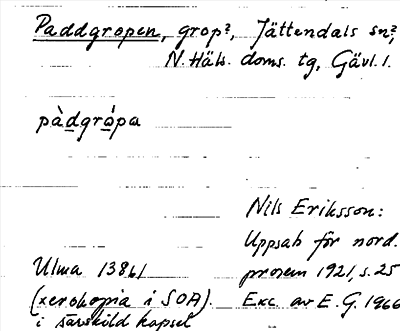 Paddgropen, grop?, Jättendals sn?,
N. Häls. doms. tg, Gävl. l.
pàdgrópa
Nils Eriksson:
Uppsats för nord.
prosem 1921, s. 25
Exc. av E. G. 1966
Ulma 1386/
(xerokopia i SOA).
i särskild kapsel